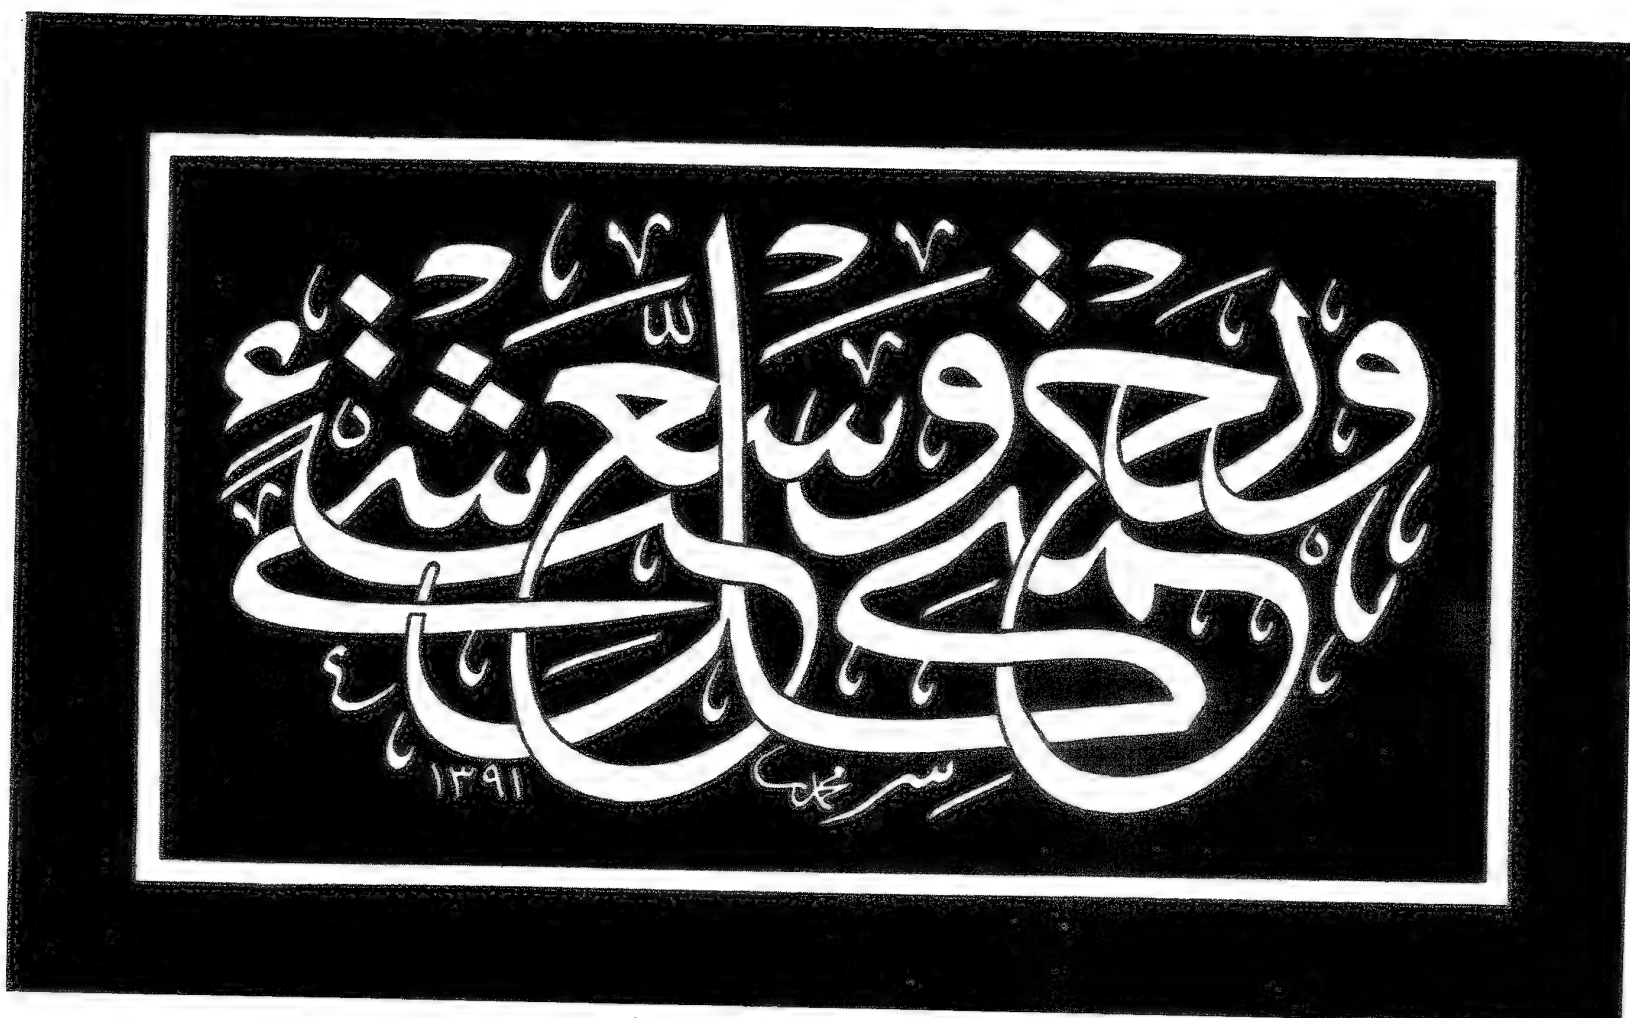 ورحمتي وسعت كل شيء
١٣٩١